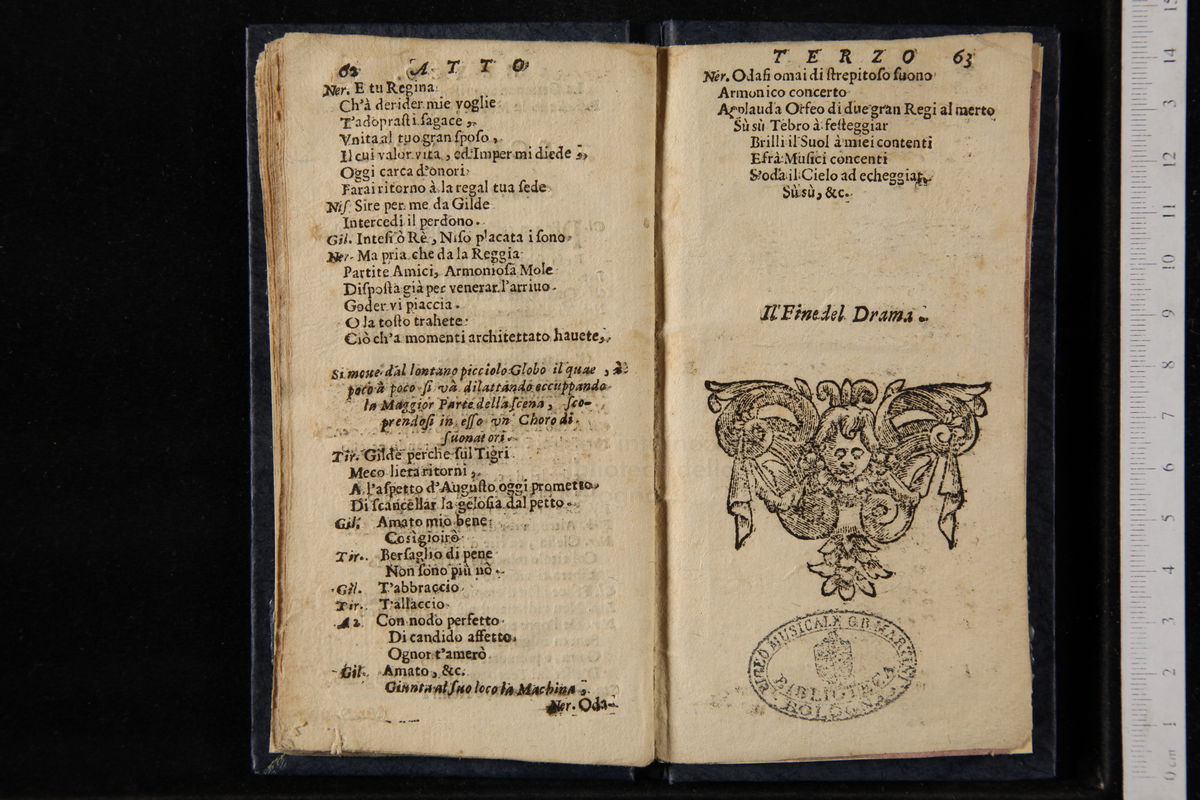 62 ATTO
Ner. E tu Regina
Ch'à derider mie voglie
T'adoprasti sagace,
Vnita al tuo gran sposo,
Il cui valor vita, ed Imper mi diede;
Oggi carca d'onori
Farai ritorno à la regal tua sede
Nis. Sire per me da Gilde
Intercedi il perdono.
Gil. Intesi ò Rè, Niso placata i sono
Ner. Ma pria che da la Reggia
Partite Amici, Armoniosa Mole
Disposta già per venerar l'arriuo
Goder vi piaccia.
O la tosto trahete
Ciò ch'a momenti architettato hauete,
Si moue dal lontano picciolo Globo il quae, à
poco à poco si và dilattando eccuppando
la Maggior Parte della scena, sco-
prendosi in esso vn Choro di
suonatori.
Tir. Gilde perche sul Tigri
Meco lieta ritorni,
A l'aspetto d'Augusto oggi prometto
Di scancellar la gelosia dal petto.
Gil. Amato mio bene
Cosi gioirò
Tir. Bersaglio di pene
Non sono più nò.
Gil. T'abbraccio
Tir. T'allaccio
A 2. Con nodo perfetto
Di candido affetto
Ognor t'amerò
Gil. Amato, &c.
Giunta al suo loco la Machina,
Ner. Oda-
TERZO 63
Ner. Odasi omai di strepitoso suono
Armonico concerto
Applauda Orfeo di due gran Regi al merto
Sù sù Tebro à festeggiar
Brilli il Suol à miei contenti
E frà Musici concenti
S'oda il Cielo ad echeggiar,
Sù sù, &c.
Il Fine del Drama.
LICEO MUSICALE G.B. MARTINI
BIBLIOTECA
BOLOGNA